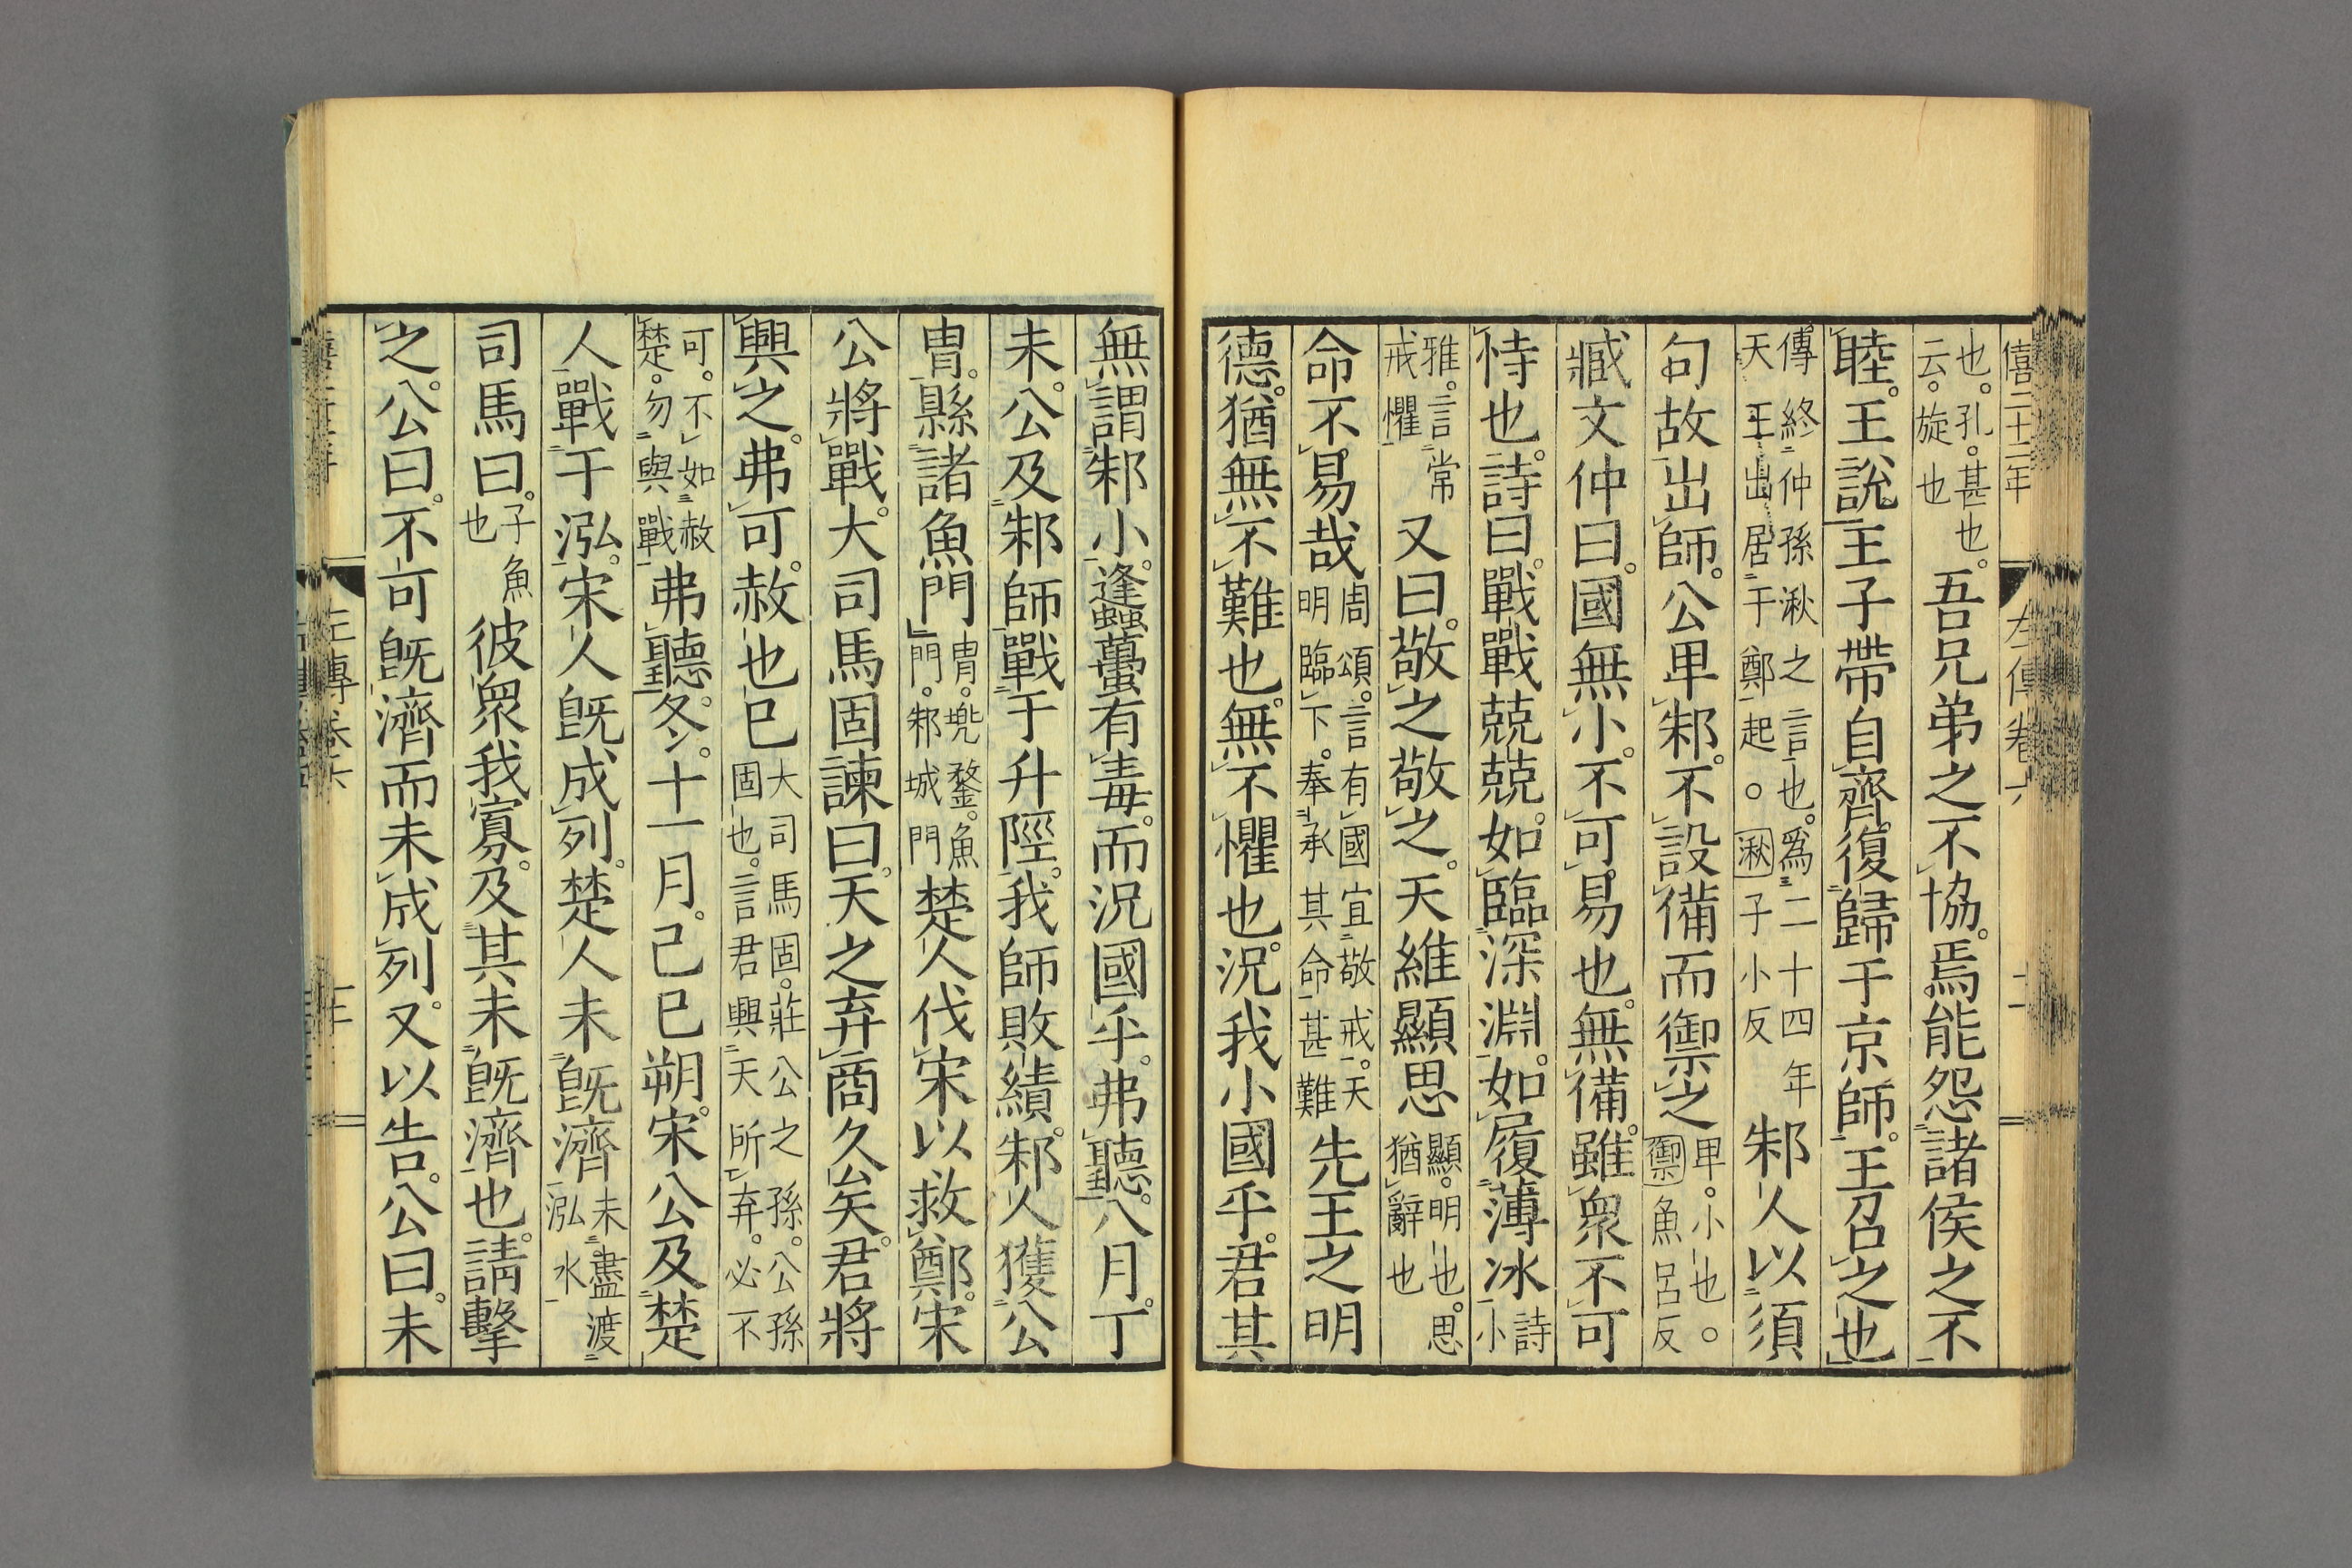 僖二十二年 左傳卷六 十一
也。孔。甚也。云。旋也吾兄弟之不協。焉能怨諸侯之不
睦。王說王子帶自齊復歸于京師。王召之也
傳終仲孫湫之言也。爲二十四年天王出居于鄭起。○湫子小反邾人以須
句故出師。公卑邾。不設備而禦之卑。小也。○禦魚呂反
臧文仲曰。國無小。不可易也。無備。雖衆不可
恃也。詩曰。戰戰兢兢。如臨深淵。如履薄冰詩小
雅。言常戒懼又曰。敬之敬之。天維顯思顯。明也。思猶辭也
命不易哉周頌。言有國宜敬戒。天明臨下。奉承其命甚難先王之明
德。猶無不難也。無不懼也。況我小國乎。君其
無謂邾小。蠭蠆有毒。而況國乎。弗聽。八月。丁
未。公及邾師戰于升陘。我師敗績。邾人獲公
冑。縣諸魚門冑。兜鍪。魚門。邾城門楚人伐宋以救鄭。宋
公將戰。大司馬固諫曰。天之弃商久矣。君將
興之。弗可。赦也已大司馬固。莊公之孫。公孫固也。言君興天所弃。必不
可。不如赦楚。勿與戰弗聽冬。十一月。己巳朔。宋公及楚
人戰于泓。宋人旣成列。楚人未旣濟未盡渡泓水
司馬曰。子魚也彼衆我寡。及其未旣濟也。請擊
之。公曰。不可旣濟而未成列。又以告。公曰。未
左傳卷六